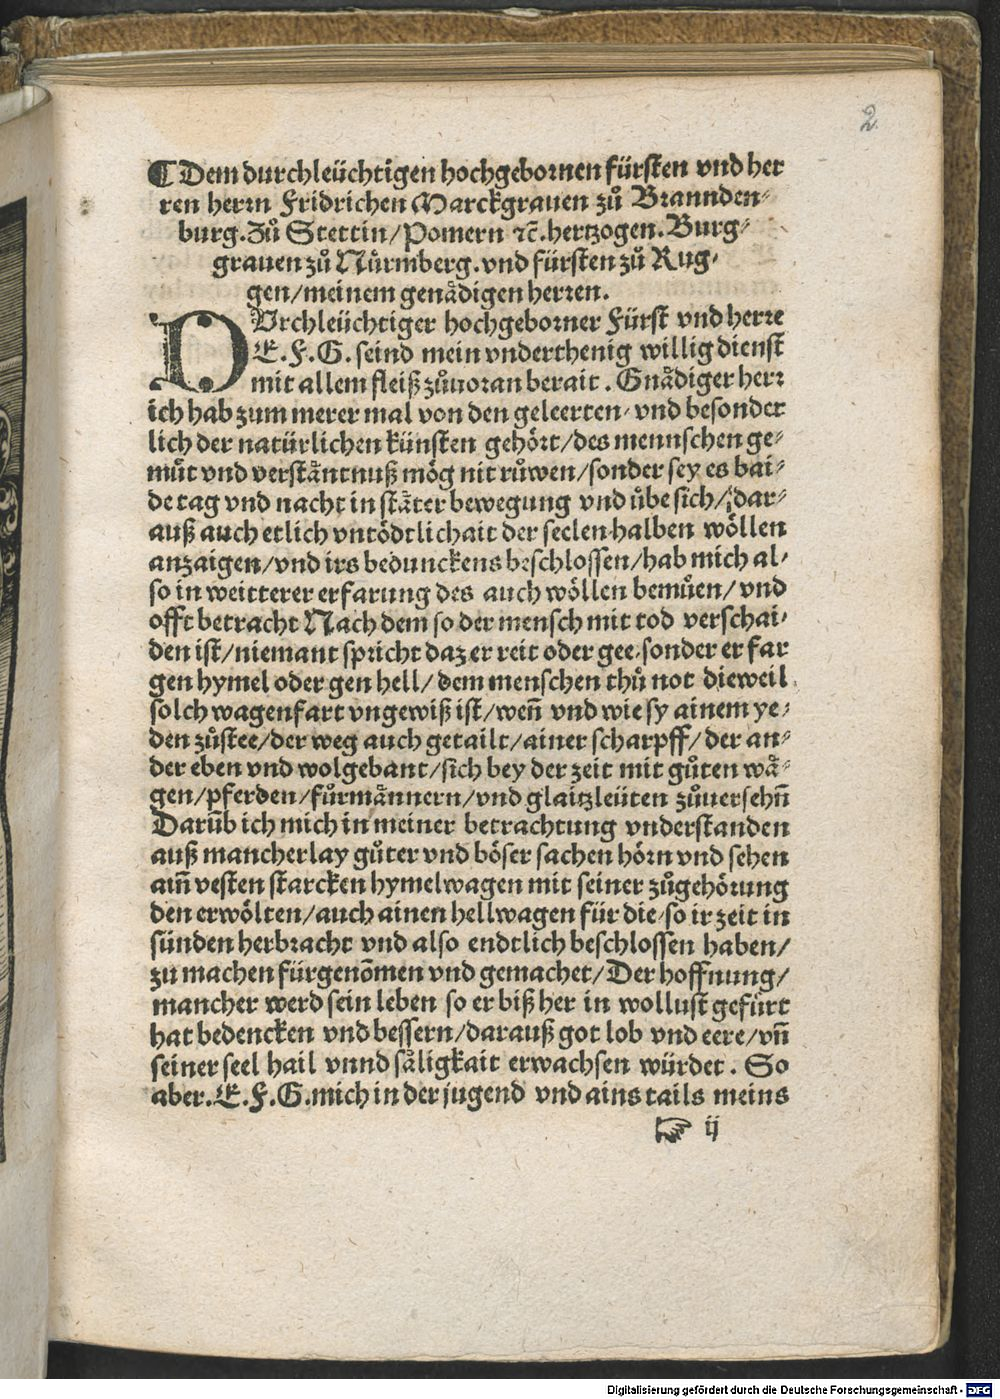 2
¶ Dem durchleüchtigen hochgebornen fürsten vnd her
ren herrn Fridrichen Marckgrauen zů Brannden⸗
burg. Zů Stettin/ Pomern ⁊c̃. hertzogen. Burg⸗
grauen zů Nürmberg. vnd fürsten zů Rug⸗
gen/ meinem genådigen herren.
DVrchleüchtiger hochgeborner Fürst vnd herre
E. F. G. seind mein vnderthenig willig dienst
mit allem fleiß zůuoran berait. Gnådiger herr
ich hab zum merer mal von den geleerten, vnd besonder
lich der natürlichen künsten gehört/ des mennschen ge⸗
můt vnd verståntnuß mög nit růwen/ sonder sey es bai⸗
de tag vnd nacht in ståter bewegung vnd ůbe sich/ dar⸗
auß auch etlich vntödtlichait der seelen halben wöllen
anzaigen/ vnd irs bedunckens beschlossen/ hab mich al⸗
so in weitterer erfarung des auch wöllen bemůen/ vnd
offt betracht Nach dem so der mensch mit tod verschai⸗
den ist/ niemant spricht daz er reit oder gee, sonder er far
gen hymel oder gen hell/ dem menschen thů not dieweil
solch wagenfart vngewiß ist/ weñ vnd wie sy ainem ye⸗
den zůstee/ der weg auch getailt/ ainer scharpff/ der an⸗
der eben vnd wolgebant/ sich bey der zeit mit gůten wå⸗
gen/ pferden/ fůrmånnern/ vnd glaitzleüten zůuersehñ
Darum̃b ich mich in meiner betrachtung vnderstanden
auß mancherlay gůter vnd böser sachen hörn vnd sehen
aiñ vesten starcken hymelwagen mit seiner zůgehörung
den erwölten/ auch ainen hellwagen für die, so ir zeit in
sünden herbracht vnd also endtlich beschlossen haben/
zu machen fürgenõmen vnd gemachet/ Der hoffnung/
mancher werd sein leben so er biß her in wollust gefůrt
hat bedencken vnd bessern/ darauß got lob vnd eere/ vñ
seiner seel hail vnnd såligkait erwachsen würdet. So
aber. E. F. G. mich in der jugend vnd ains tails meins
☞ ij
Digitalisierung gefördert durch die Deutsche Forschungsgemeinschaft - DFG